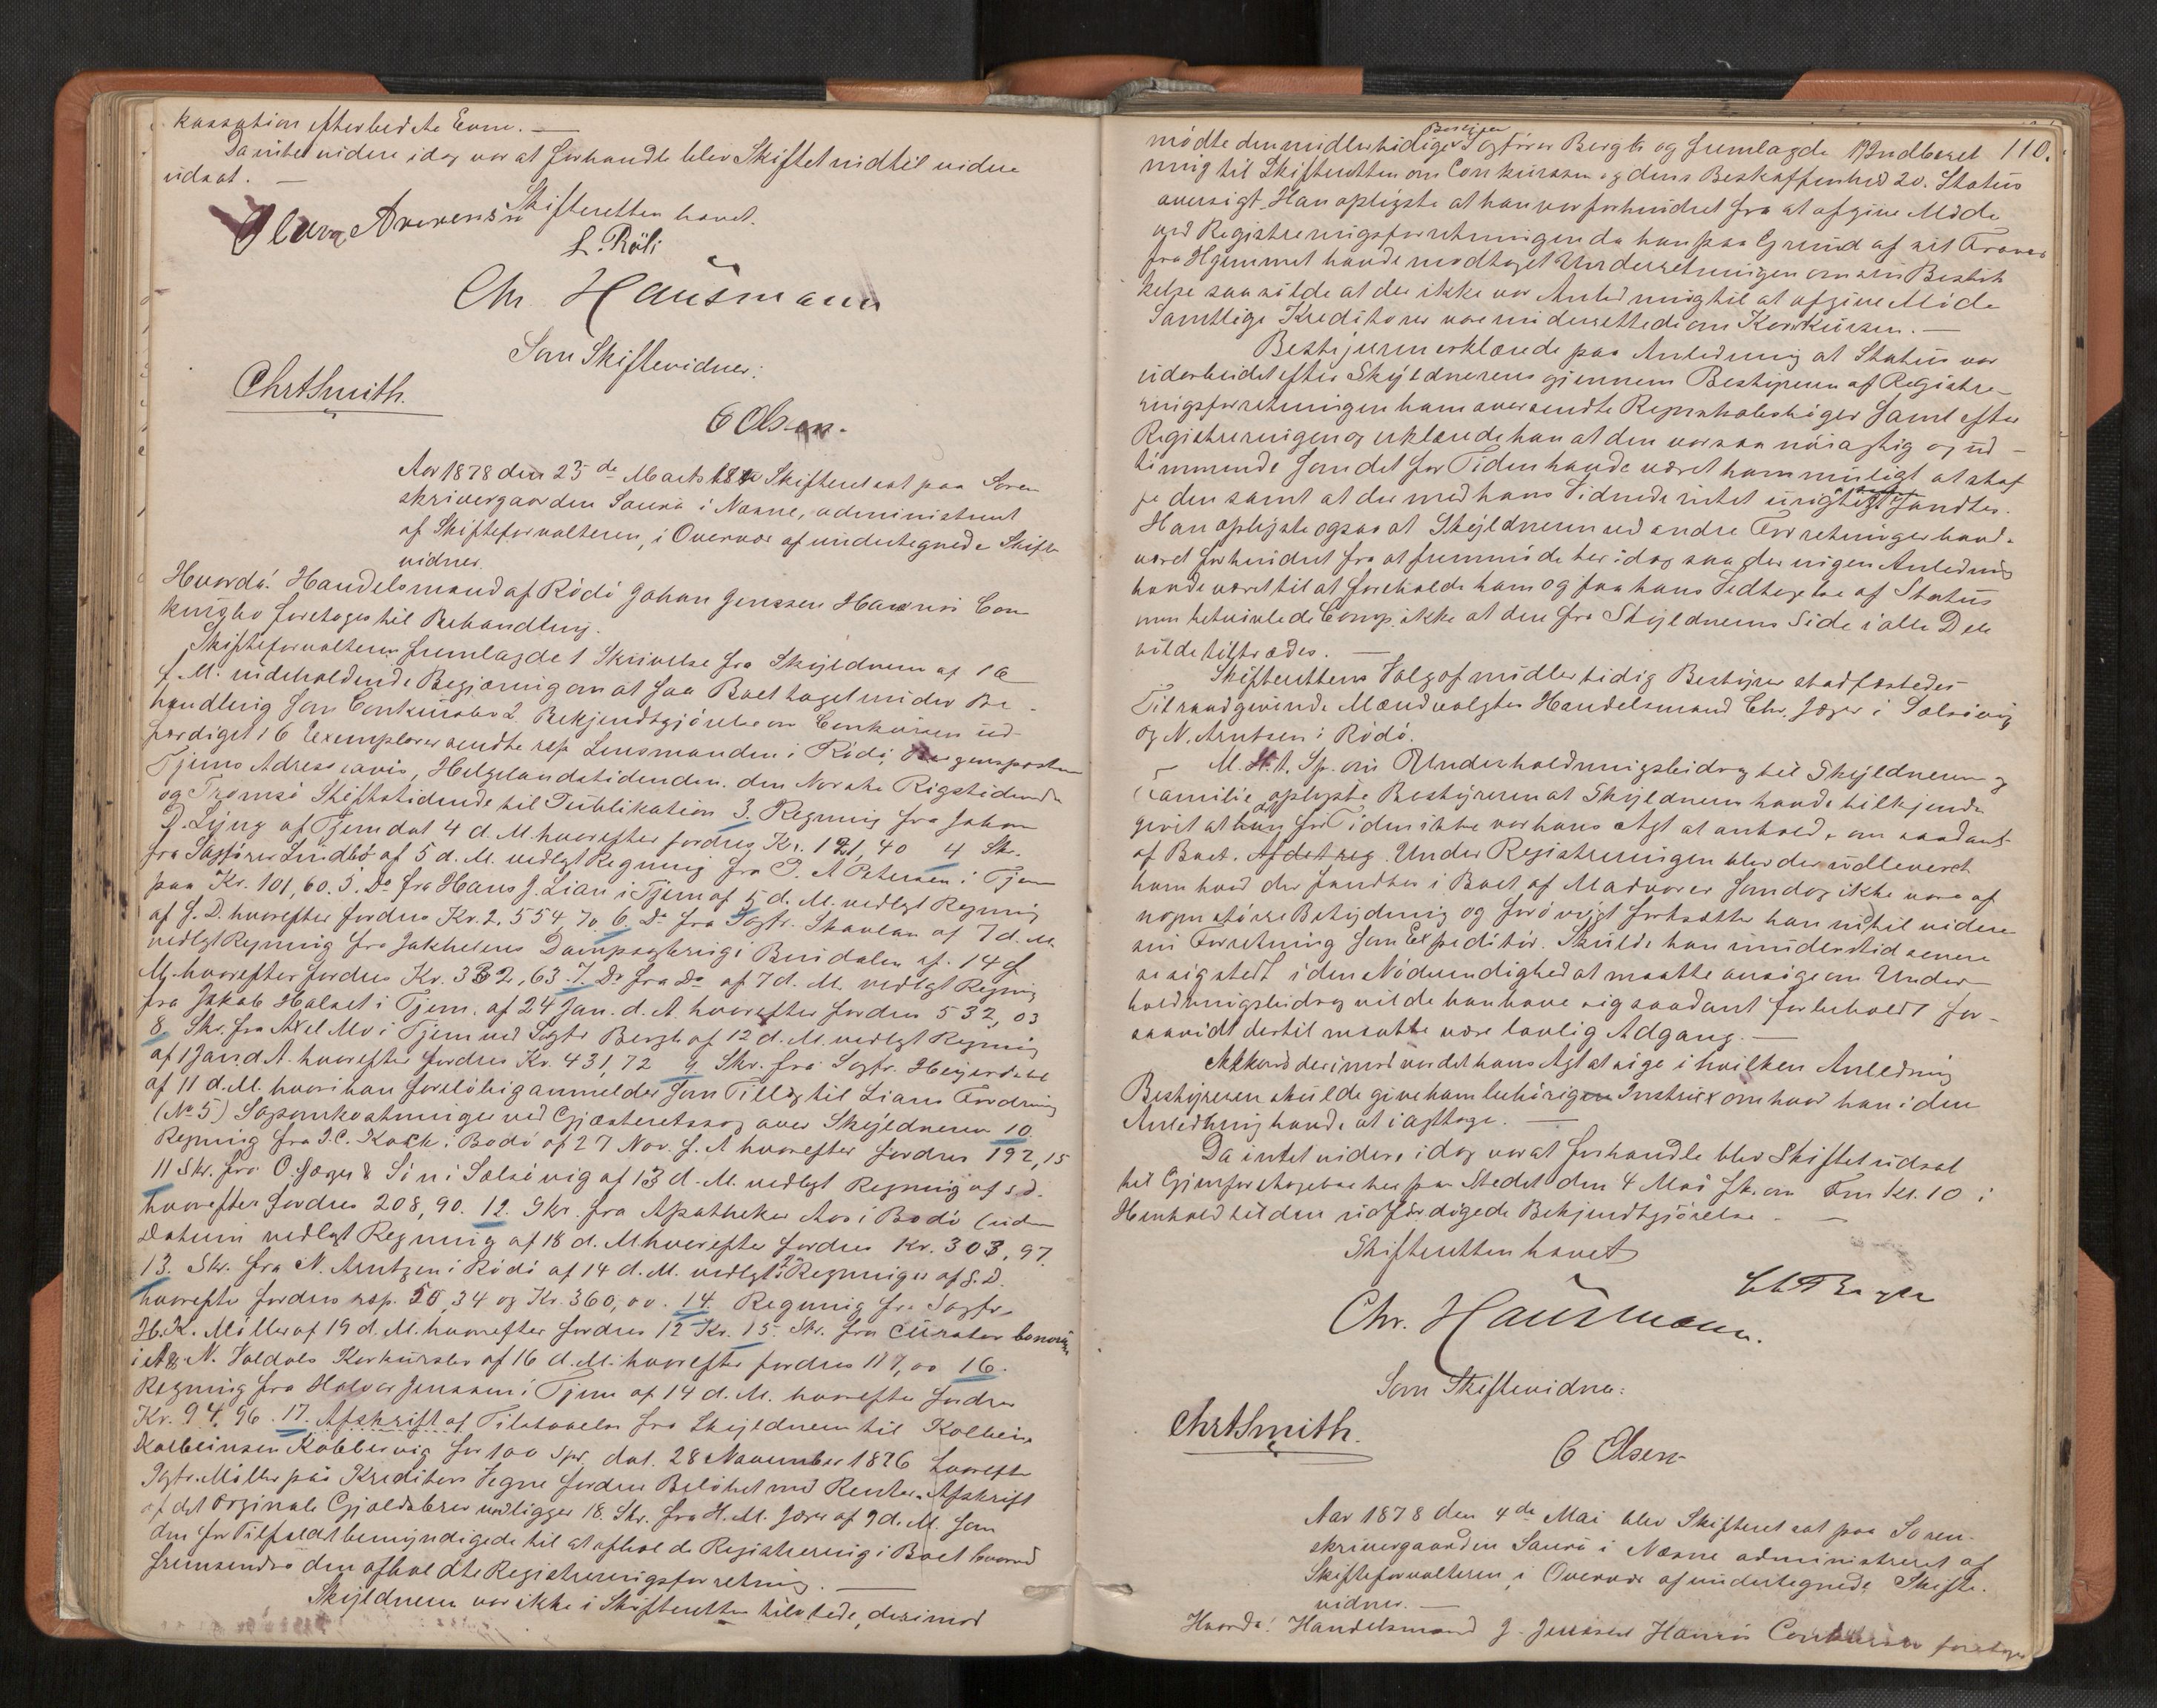 kassation efter bedste Evne. —
Da intet videre idag var at forhandle blev Skiftet indtil videre
udsat. —
Skifteretten hævet.
Oluva Arensen
L. Röli
Chr Hausmann
Som Skiftevidner:
ChrtSmith.
C Olsen.
Aar 1878 den 23de Marts blev Skifteret sat paa Soren
skrivergaarden Saura i Næsne, administreret
af Skifteforvalteren, i Overvær af undertegnede Skifte
vidner.
Hvorda! Handelsmand af Rödö Johan Jenssen Havnös Con
kursbo foretages til Behandling.
Skifteforvalteren fremlagde 1 Skrivelse fra Skyldneren af 16
f. M. indeholdende Begjæring om at faa Boet taget under Be-
handling som Conkursbo 2. Bekjendtgjörelse om Conkursen ud-
færdiget i 6 Exemplarer sendte resp Lensmanden i Rödö, Bergensposten
Tjems Adresseavis, Helgelandstidenden, den Norske Rigstidende
og Tromsö Stiftstidende til Publikation 3. Regning fra Johan
D. Ljung af Tjem dat 4 d. M. hvorefter fordres Kr. 121,40 4 Skr.
fra Sagförer Lindbö af 5 d. M. vedlagt Regning fra P. A Petersen i Tjem
paa Kr. 101,60. 5. Do fra Hans J. Lian i Tjem af 5 d. M. vedlagt Regning
af S. D. hvorefter fordres Kr. 2,554,70. 6. Do fra Sagfr. Skavlan af 7 d. M.
vedlagt Regning fra Jakhelens Dampsagbrug i Bindalen af 14 f
M. hvorefter fordres Kr. 332,63. 7. Do fra Do af 7 d. M. vedlagt Regning
fra Jakob Halset i Tjem. af 24 Jan. d. A. hvorefter fordres 532,03
8. Skr. fra Axel Mo i Tjem ved Sagfr Bergh af 12 d. M. vedlagt Regning
af 1 Jan d. A. hvorefter fordres Kr. 431,72 9 Skr. fra Sagfr. Heyerdahl
af 11 d. M. hvori han forelöbig anmelder som Tillæg til Lians Fordring
(No 5) Sagsomkostninger ved Gjæsteretssag over Skyldneren 10.
Regning fra J. C. Koch i Bodö af 27 Nov. f. A hvorefter fordres 192,15
11 Skr. fra O. Jæger & Sön i Selsövig af 13 d. M. vedlagt Regning af s. d.
hvorefter fordres 208,90. 12. Skr. fra Apotheker Aas i Bodö (uden
Datum vedlagt Regning af 18 d. M hvorefter fordres Kr. 303,97.
13. Skr. fra N. Arntzen i Rödö af 14 d. M. vedlagt 2 Regninger af S. D.
hvorefter fordres resp. 50,34 og Kr. 360,00. 14. Regning fra Sagfr.
H. K. Möller af 19 d. M. hvorefter fordres 12 Kr. 15. Skr. fra Curator bonorum
i A & N. Valdals Konkursbo af 16 d. M. hvorefter fordres 117,00 16.
Regning fra Halvor Jenssen i Tjem af 14 d. M. hvorefter fordres
Kr. 94,96. 17. Afskrift af Tilstaaelse fra Skyldneren til Kolbein
Kolbeinsen Kobbervig for 100 Spd. dat. 28 November 1876 hvorefter
Sagfr. Möller paa Kreditors Vegne fordrer Belöbet med Renter. Afskrift
af det orginale Gjældsbrev vedligger 18. Skr. fra H. M. Jæger af 9 d. M. som
den for Tilfældet bemyndigede til at afholde Registrering i Boet hvorved
fremsendes den afholdte Registreringsforretning. —
Skyldneren var ikke i Skifteretten tilstede, derimod
110.
mödte den midlertidige Bestyrer Sagförer Bergh og fremlagde 19 Indberet
ning til Skifteretten om Conkursen og dens Beskaffenhed 20. Status
oversigt. Han oplyste at han var forhindret fra at afgive Möde
ved Registreringsforretningen da han paa Grund af sit Fravær
fra Hjemmet havde modtaget Underretningen om sin Beskik
kelse saa silde at der ikke var Anledning til at afgive Möde
Samtlige Kreditorer vare underrettede om Konkursen. —
Bestyreren erklærede paa Anledning at Status var
udarbeidet efter Skyldnerens gjennem Bestyreren af Registre-
ringsforretningen ham oversendte Regnskabsböger samt efter
Registreringen og erklærede han at den var saa nöiagtig og ud-
tömmende som det for Tiden havde været ham muligt at skaf
fe den samt at der med hans Vidende intet urigtigt fandtes.
Han oplyste ogsaa at Skyldneren ved andre Forretninger havde
været forhindret fra at fremmöde her idag saa der ingen Anledning
havde været til at foreholde ham og faa hans Vedtagelse af Status
men betvivlede Comp. ikke at den fra Skyldnerens Side i alle Dele
vilde tiltrædes. —
Skifterettens Valg af midlertidig Bestyrer stadfæstedes
Til raadgivende Mænd valgtes Handelsmand Chr. Jæger i Selsövig
og N. Arntsen i Rödö.
M. H. t. Sp. om Underholdningsbidrag til Skyldneren og
Familie oplyste Bestyreren at Skyldneren havde tilkjende
givet at han for Tiden ikke var hans Agt at anholde om saadant
af Boet. Af det reg. Under Registreringen blev der udleveret
ham hvad der fandtes i Boet af Madvarer som dog ikke vare af
nogen större Betydning og forövrigt fortsætter han indtil videre
sin Forretning som Expeditör. Skulde han imidlertid senere
se sig stedt i den Nödvendighed at maatte ansöge om Under-
holdningsbidrag vilde han have sig saadant forbeholdt for-
saavidt dertil maatte være lovlig Adgang. —
Akkord derimod var det hans Agt at söge i hvilken Anledning
Bestyreren skulde give ham behörigen Instrux om hvad han i den
Anledning havde at iagttage. —
Da intet videre idag var at forhandle blev Skiftet udsat
til Gjenforetagelse her paa Stedet den 4 Mai fk. om Fm Kl. 10 i
Henhold til den udfærdigede Bekjendtgjörelse. —
Skifteretten hævet
Chr. Hausmann.
Som Skiftevidner:
ChrtSmith.
C Olsen
Aar 1878 den 4de Mai blev Skifteret sat paa Soren-
skrivergaarden Saura i Næsne administreret af
Skifteforvalteren, i Overvær af undertegnede Skifte-
vidner. —
Hvorda! Handelsmand J. Jenssen Havnös Conkursbo foretages